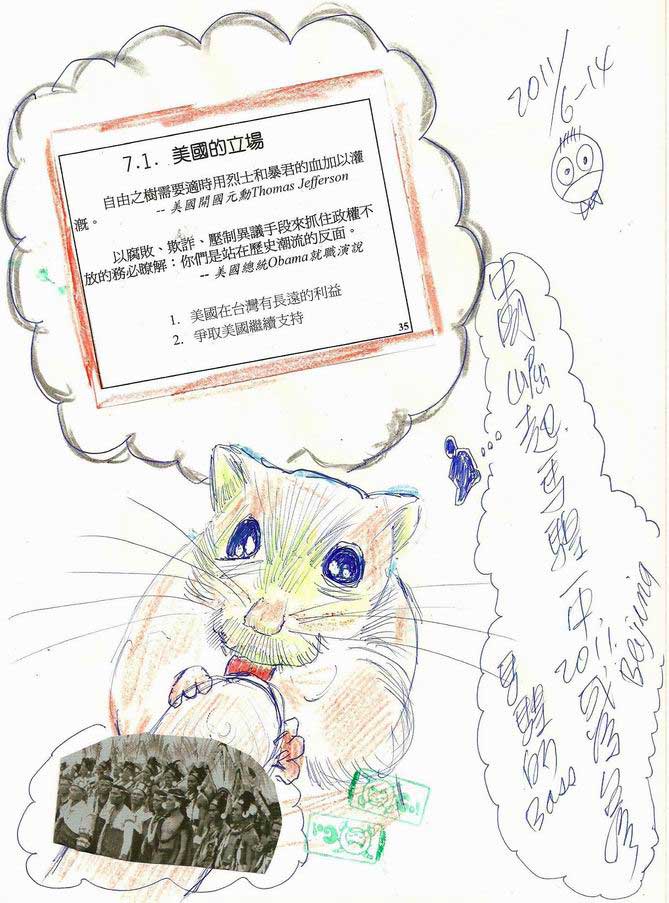 7.1. 美國的立場
自由之樹需要適時用烈士和暴君的血加以灌
溉。 -- 美國開國元勳Thomas Jefferson
以腐敗、欺詐、壓制異議手段來抓住政權不
放的務必瞭解：你們是站在歷史潮流的反面。
-- 美國總統Obama就職演說
1. 美國在台灣有長遠的利益
2. 爭取美國繼續支持
35
2011/6-14
崛起馬聖
2011
Beijing
馬聖的
Boss